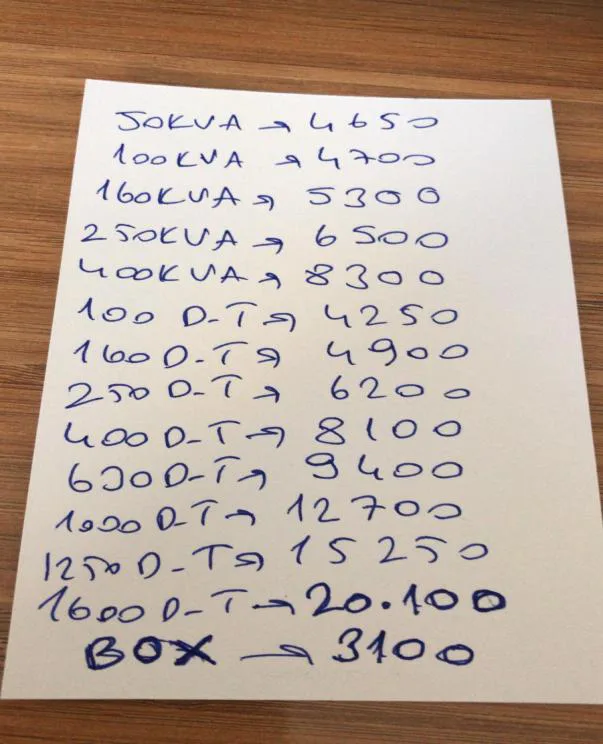 50KVA → 4650
100KVA → 4700
160KVA → 5300
250KVA → 6500
400KVA → 8300
100 D-T → 4250
160 D-T → 4900
250 D-T → 6200
400 D-T → 8100
630 D-T → 9400
1000 D-T → 12700
1250 D-T → 15250
1600 D-T → 20.100
BOX → 3100